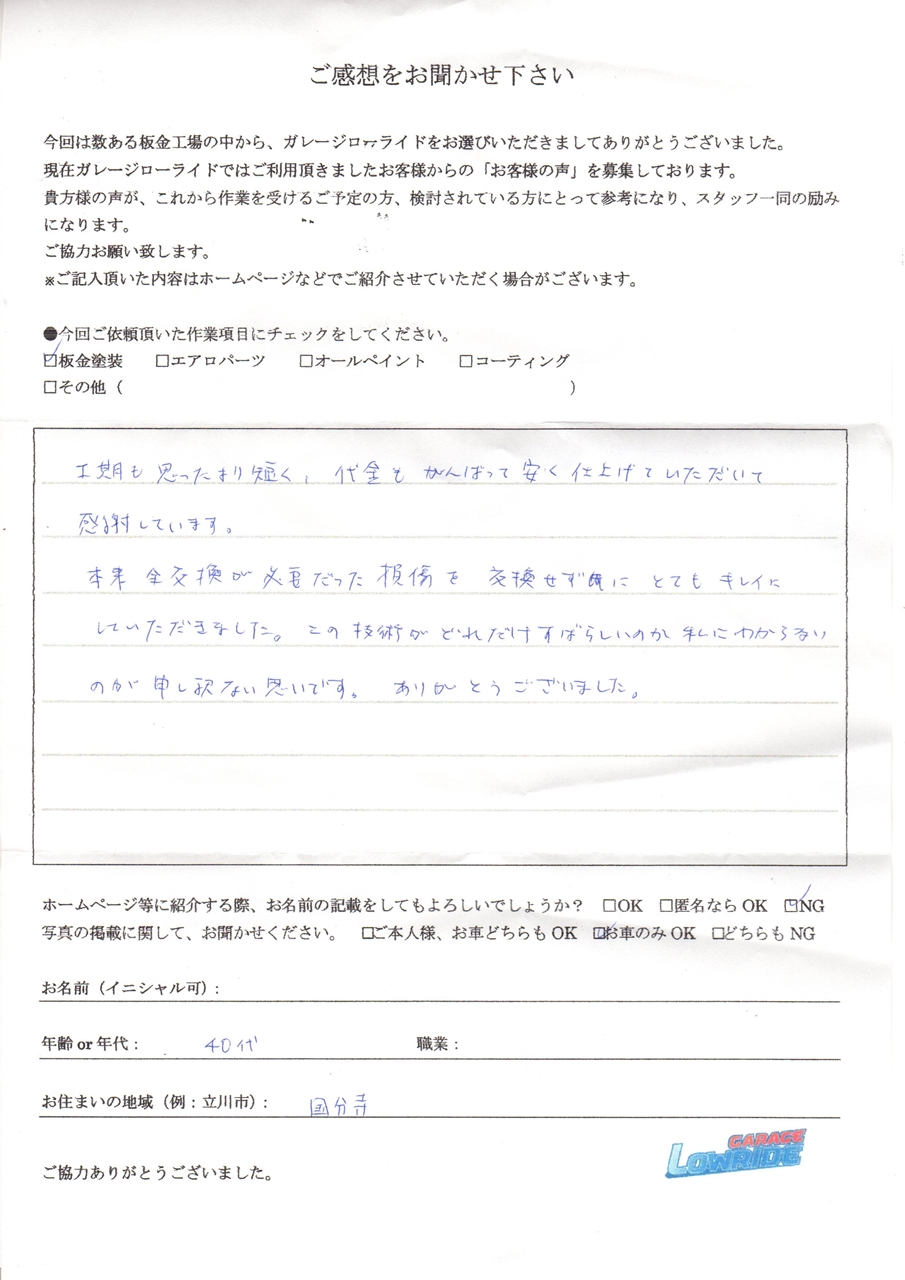 ご感想をお聞かせ下さい
今回は数ある板金工場の中から、ガレージローライドをお選びいただきましてありがとうございました。
現在ガレージローライドではご利用頂きましたお客様からの「お客様の声」を募集しております。
貴方様の声が、これから作業を受けるご予定の方、検討されている方にとって参考になり、スタッフ一同の励み
になります。
ご協力お願い致します。
※ご記入頂いた内容はホームページなどでご紹介させていただく場合がございます。
●今回ご依頼頂いた作業項目にチェックをしてください。
☑板金塗装 □エアロパーツ □オールペイント □コーティング
□その他（ ）
工期も思ったより短く、代金もがんばって安く仕上げていただいて
感謝しています。
本来全交換が必要だった損傷を交換せずにとてもキレイに
していただきました。この技術がどれだけすばらしいのか私にわからない
のが申し訳ない思いです。ありがとうございました。
ホームページ等に紹介する際、お名前の記載をしてもよろしいでしょうか？ □OK □匿名なら OK ☑NG
写真の掲載に関して、お聞かせください。 □ご本人様、お車どちらも OK ☑お車のみ OK □どちらも NG
お名前（イニシャル可）：
年齢 or 年代： 40代 職業：
お住まいの地域（例：立川市）： 国分寺
GARAGE
LOWRIDE
ご協力ありがとうございました。